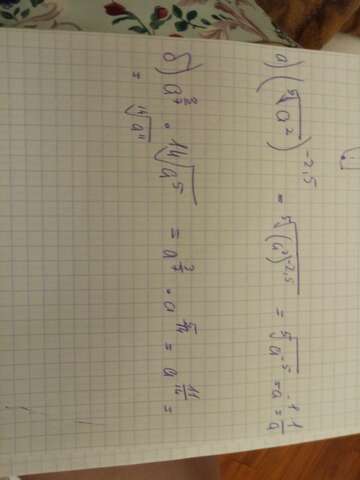 а) (⁵√a²)^-2,5 = ⁵√(a²)^-2,5 = ⁵√a^-5 = a^-1 = 1/a
б) a^3/7 · ¹⁴√a⁵ = a^3/7 · a^5/14 = a^11/14 =
= ¹⁴√a¹¹